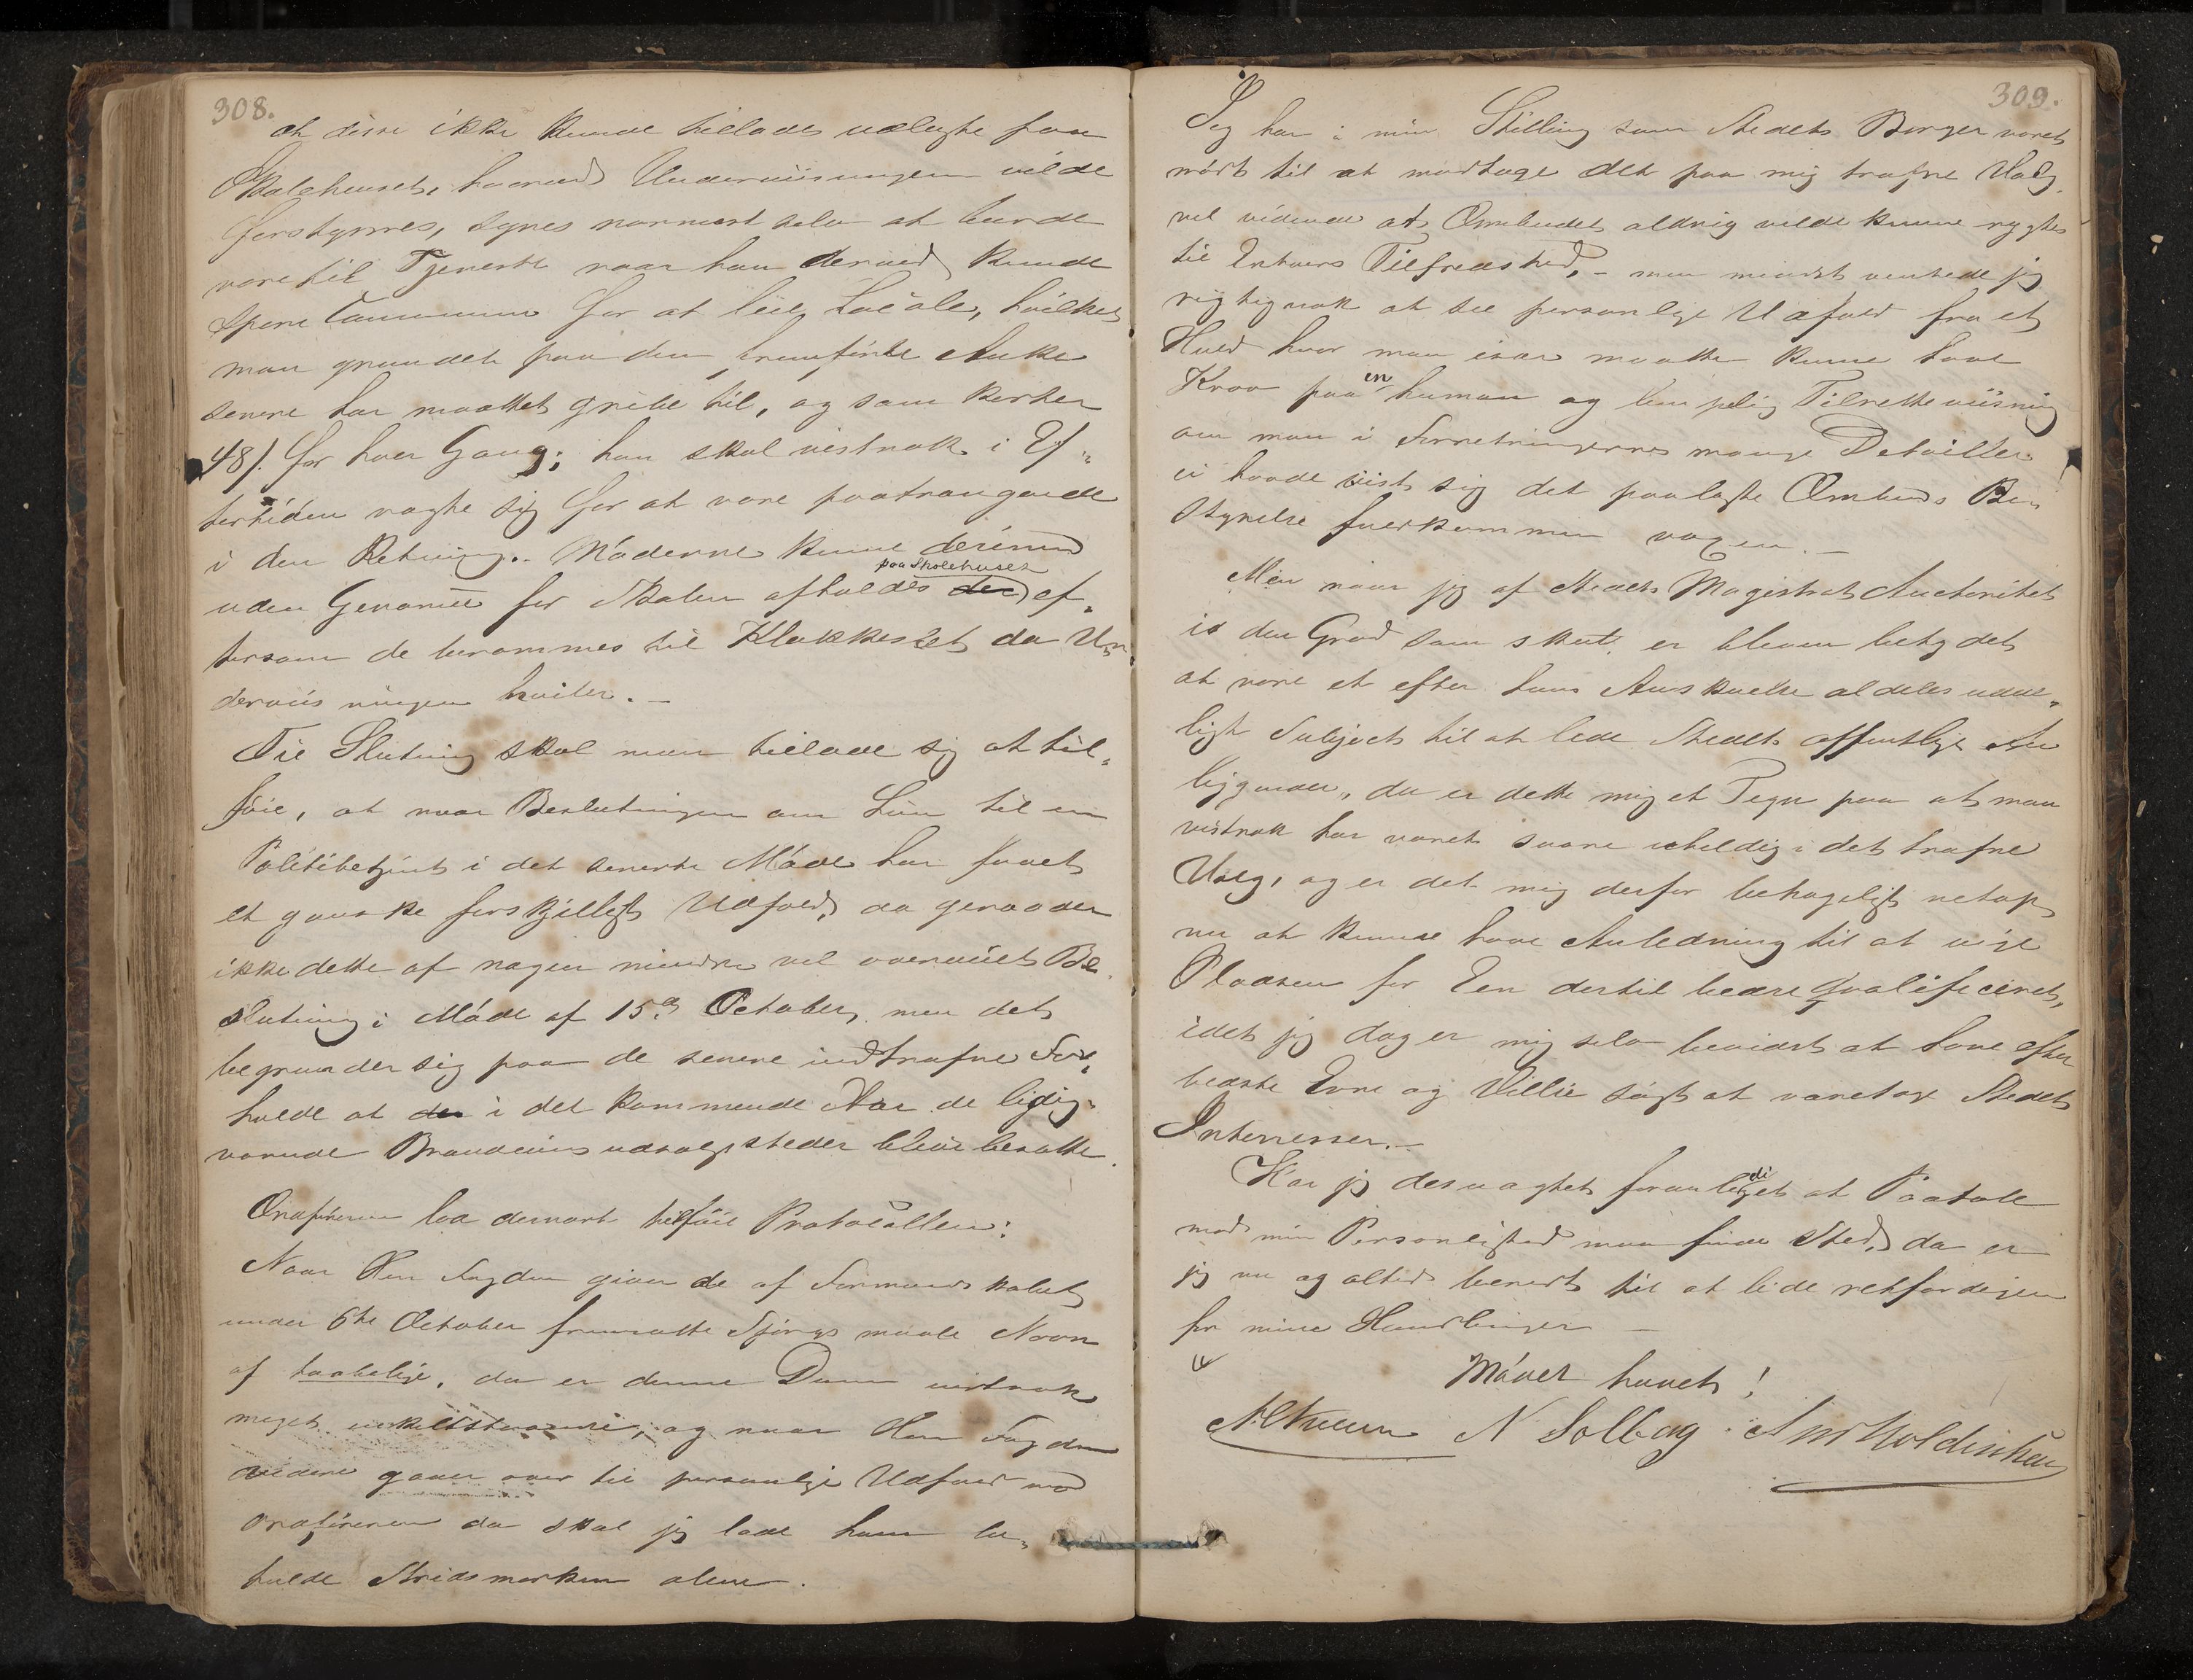 308.
at disse ikke kunde tillades udlagte paa
Skolehuset, hvorved Underviisningen vilde
forstyrres, synes nærmest selv at burde
være til Tjeneste naar han derved kunde
spare Communen for at leie Locale, hvilket
man grundet paa den fremførte Anke
senere har maattet gribe til, og som koster
48/. for hver Gang; han skal vistnok i Ef„
tertiden vogte sig for at være paatrængende
i den Retning. Møderne kunne derimod
paa Skolehuset
uden Genanee for Skolen afholdes der ef„
tersom de berammes til Klokkeslet da Un„
derviisningen hviler. –
Til Slutning skal man tillade sig at til„
føie, at naar Beslutningen om Løn til en
Politibetjent i det seneste Møde har faaet
et ganske forskjelligt Udfald, da geraader
ikke dette af nogen mindre vel overveiet Be„
slutning i Møde af 15de October, men det
begrunder sig paa de senere indtrufne For„
holde at der i det kommende Aar de ledig„
værende Brændeviinsudsalgssteder bleve besatte.
Ordføreren lod dernæst tilføie Protocollen:
Naar Herr Fogden giver de af Formandskabet
under 6te October fremsatte Spørgsmaale Navn
af taabelige, da er denne Dom vistnok
meget enkeltstaaende, og naar Herr Fogden
videre gaaer over til personlige Udfald mod
Ordføreren da skal jeg lade ham be„
holde Stridsmarken alene.
309.
Jeg har i min Stilling som Stedets Borger været
nødt til at modtage det paa mig trufne Valg,
vel vidende at Ombudet aldrig vilde kunne rygtes
til Enhvers Tilfredshed, – men mindst ventede jeg
rigtignok at see personlige Udfald fra et
Hold hvor man især maatte kunne have
en
Krav paa human og lempelig Tilretteviisning
om man i Forretningernes mange Detailler
ei havde viist sig det paalagte Ombuds Be„
styrelse fuldkommen voxen. –
Men naar jeg af Stedets Magistrat Auctoritet
i den Grad som skeet, er bleven betydet
at være et efter hans Anskuelse aldeles udue„
ligt Subject til at lede Stedets offentlige An
liggender, da er dette mig et Tegn paa at man
vistnok har været saare uheldig i det trufne
Valg, og er det mig derfor behageligt netop
nu at kunne have Anledning til at vige
Pladsen for Een dertil bedre Qvalificeret,
idet jeg dog er mig selv bevidst at have efter
bedste Evne og Villie søgt at varetage Stedets
Interesser. –
Har jeg desuagtet foranlediget at Paatale
mod min Personlighed maa finde Sted, da er
jeg nu og altid beredt til at lide retfærdigen
for mine Handlinger –
Mødet hævet!
N Solberg